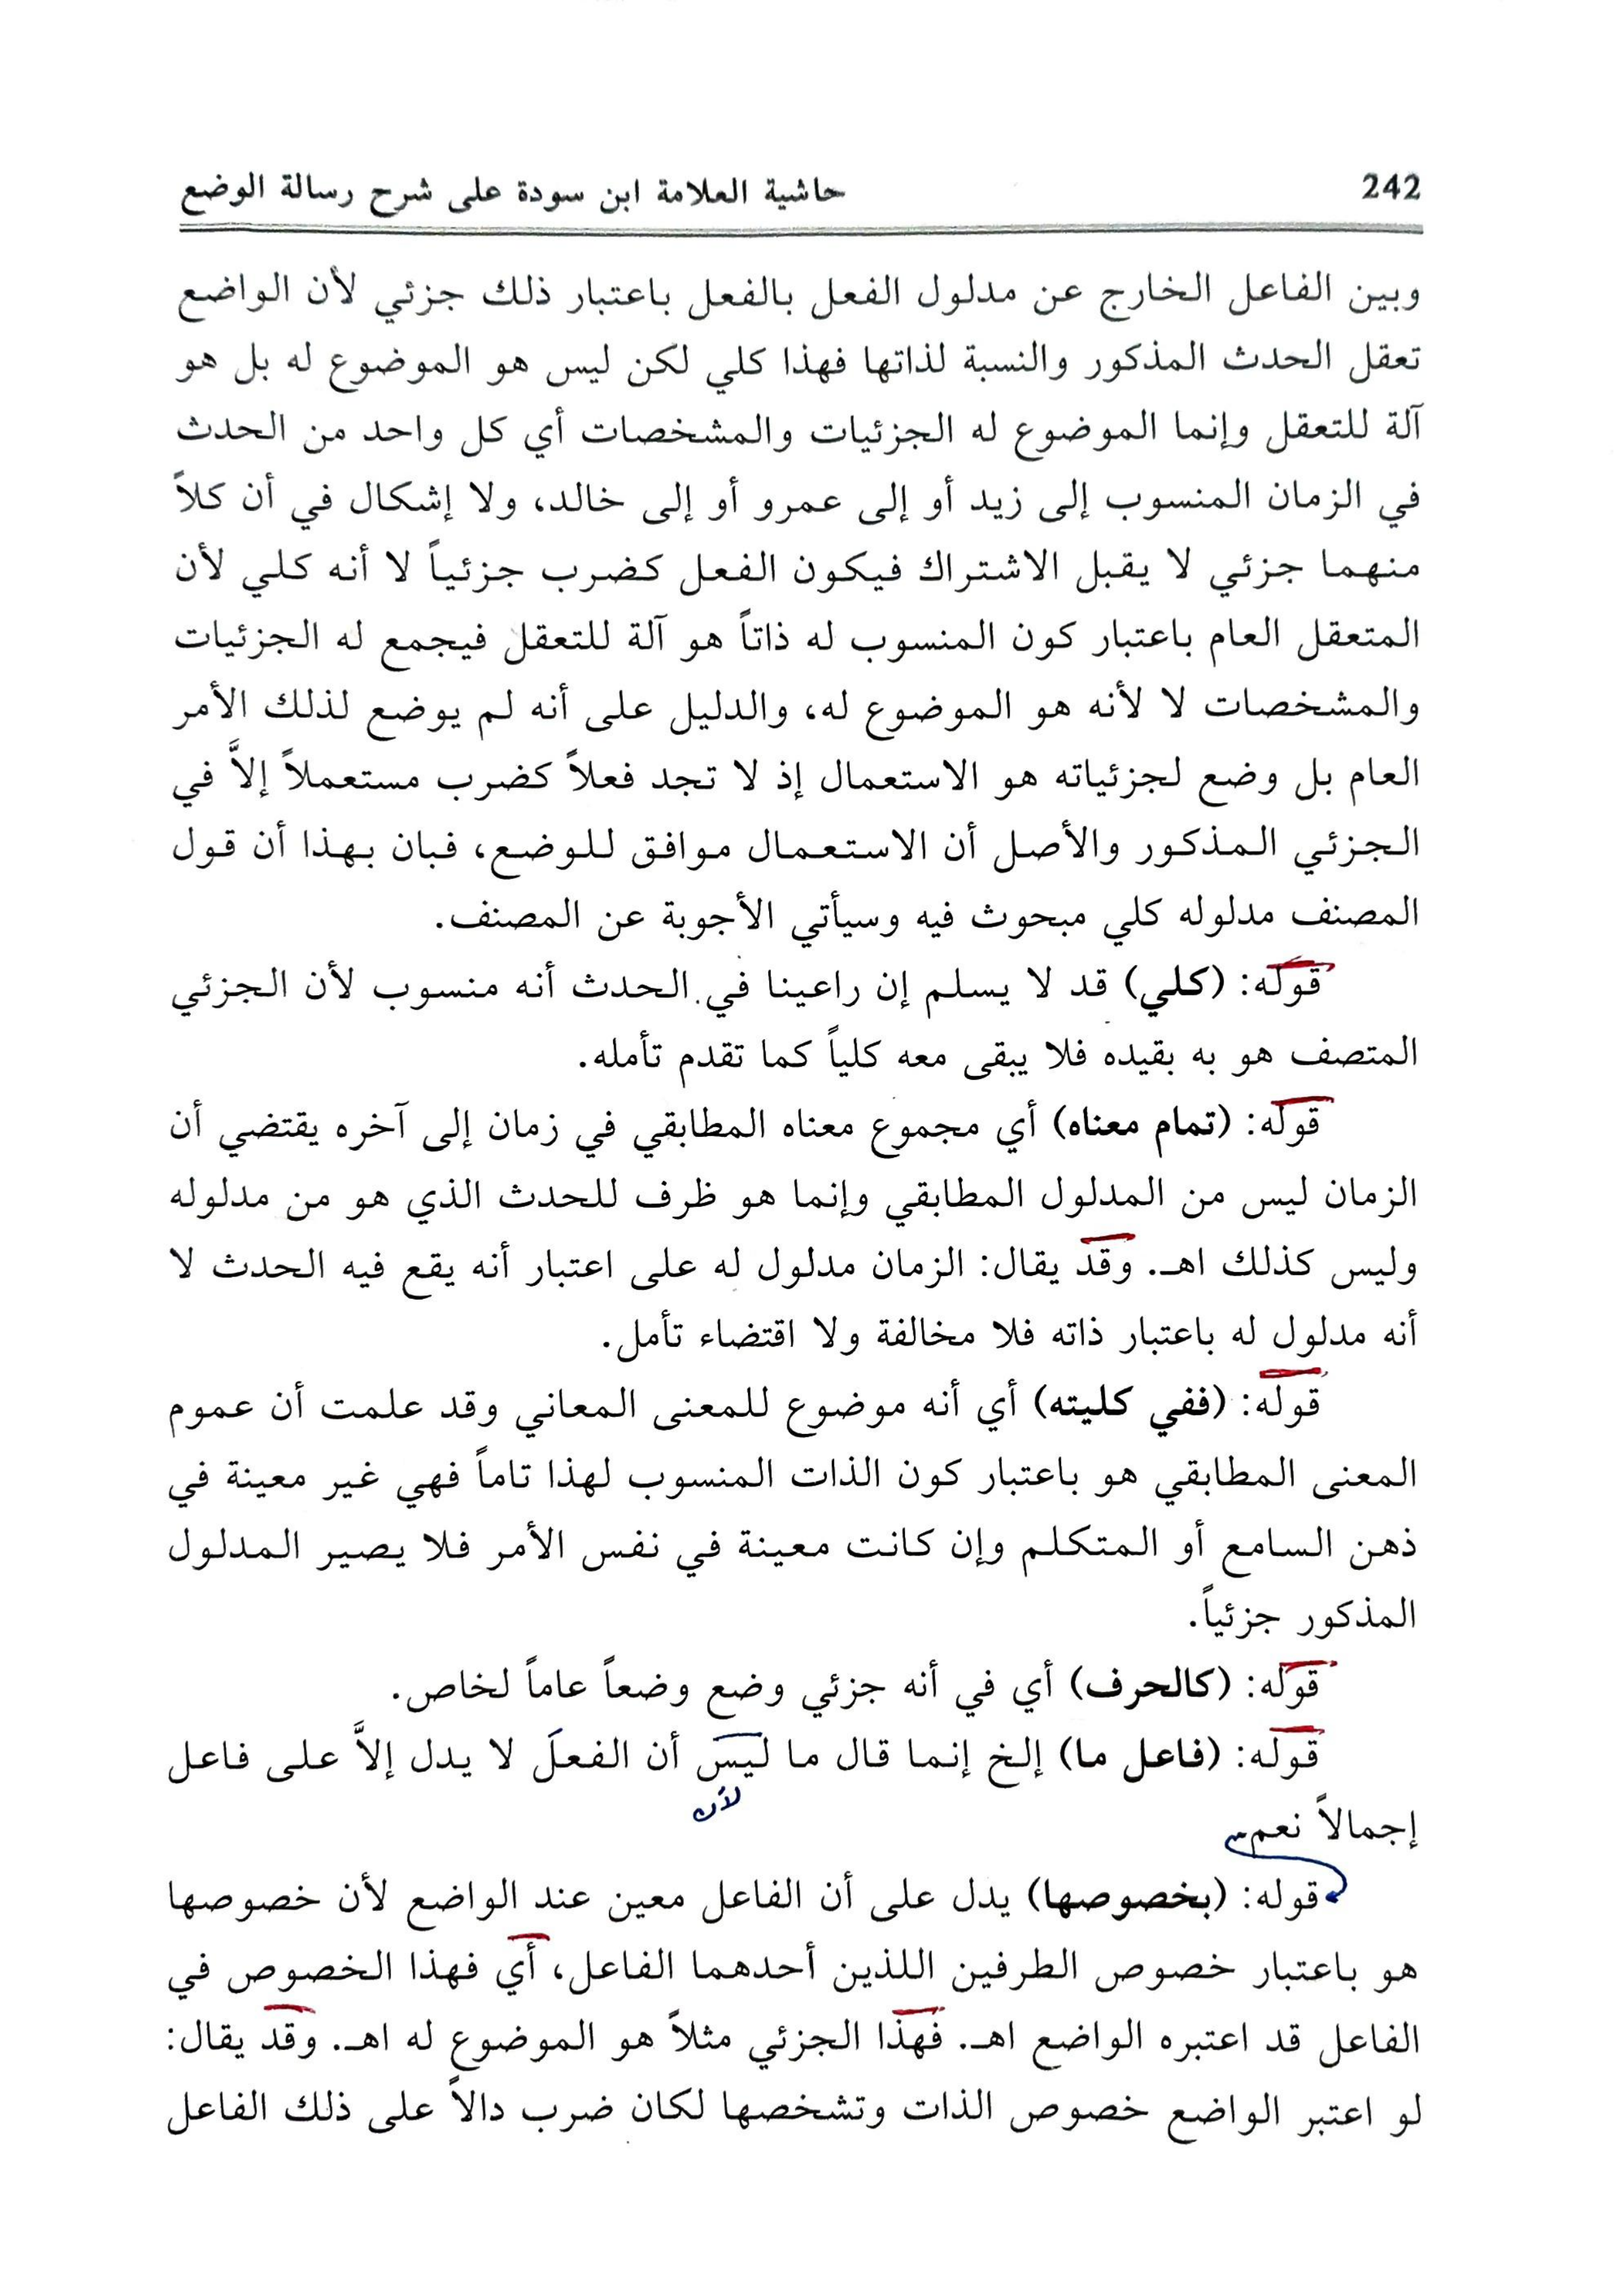 242
حاشية العلامة ابن سودة على شرح رسالة الوضع
وبين الفاعل الخارج عن مدلول الفعل بالفعل باعتبار ذلك جزئي لأن الواضع
تعقل الحدث المذكور والنسبة لذاتها فهذا كلي لكن ليس هو الموضوع له بل هو
آلة للتعقل وإنما الموضوع له الجزئيات والمشخصات أي كل واحد من الحدث
في الزمان المنسوب إلى زيد أو إلى عمرو أو إلى خالد، ولا إشكال في أن كلاً
منهما جزئي لا يقبل الاشتراك فيكون الفعل كضرب جزئياً لا أنه كلي لأن
المتعقل العام باعتبار كون المنسوب له ذاتاً هو آلة للتعقل فيجمع له الجزئيات
والمشخصات لا لأنه هو الموضوع له، والدليل على أنه لم يوضع لذلك الأمر
العام بل وضع لجزئياته هو الاستعمال إذ لا تجد فعلاً كضرب مستعملاً إلاَّ في
الجزئي المذكور والأصل أن الاستعمال موافق للوضع، فبان بهذا أن قول
المصنف مدلوله كلي مبحوث فيه وسيأتي الأجوبة عن المصنف.
قوله: (كلي) قد لا يسلم إن راعينا في الحدث أنه منسوب لأن الجزئي
المتصف هو به بقيده فلا يبقى معه كلياً كما تقدم تأمله.
قوله: (تمام معناه) أي مجموع معناه المطابقي في زمان إلى آخره يقتضي أن
الزمان ليس من المدلول المطابقي وإنما هو ظرف للحدث الذي هو من مدلوله
وليس كذلك اهـ. وقد يقال: الزمان مدلول له على اعتبار أنه يقع فيه الحدث لا
أنه مدلول له باعتبار ذاته فلا مخالفة ولا اقتضاء تأمل.
قوله: (ففي كليته) أي أنه موضوع للمعنى المعاني وقد علمت أن عموم
المعنى المطابقي هو باعتبار كون الذات المنسوب لهذا تاماً فهي غير معينة في
ذهن السامع أو المتكلم وإن كانت معينة في نفس الأمر فلا يصير المدلول
المذكور جزئياً.
قوله: (كالحرف) أي في أنه جزئي وضع وضعاً عاماً لخاص.
قوله: (فاعل ما) إلخ إنما قال ما ليس أن الفعلَ لا يدل إلاَّ على فاعل
لأن
إجمالاً نعم
قوله: (بخصوصها) يدل على أن الفاعل معين عند الواضع لأن خصوصها
هو باعتبار خصوص الطرفين اللذين أحدهما الفاعل، أي فهذا الخصوص في
الفاعل قد اعتبره الواضع اهـ. فهذا الجزئي مثلاً هو الموضوع له اهـ. وقد يقال:
لو اعتبر الواضع خصوص الذات وتشخصها لكان ضرب دالاً على ذلك الفاعل